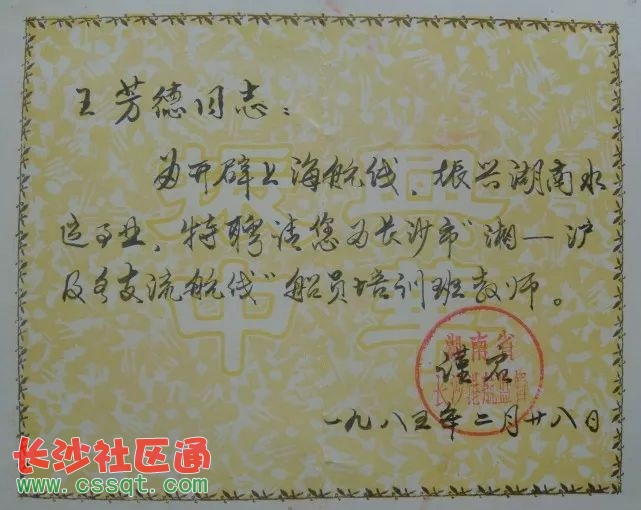 王芳德同志：
为开辟上海航线，振兴湖南水
运事业，特聘请您为长沙市“湘—沪
及各支流航线”船员培训班教师。
振興
中華
湖南省
长沙港航监督
谨启
一九八五年二月廿八日
长沙社区通
www.cssqt.com